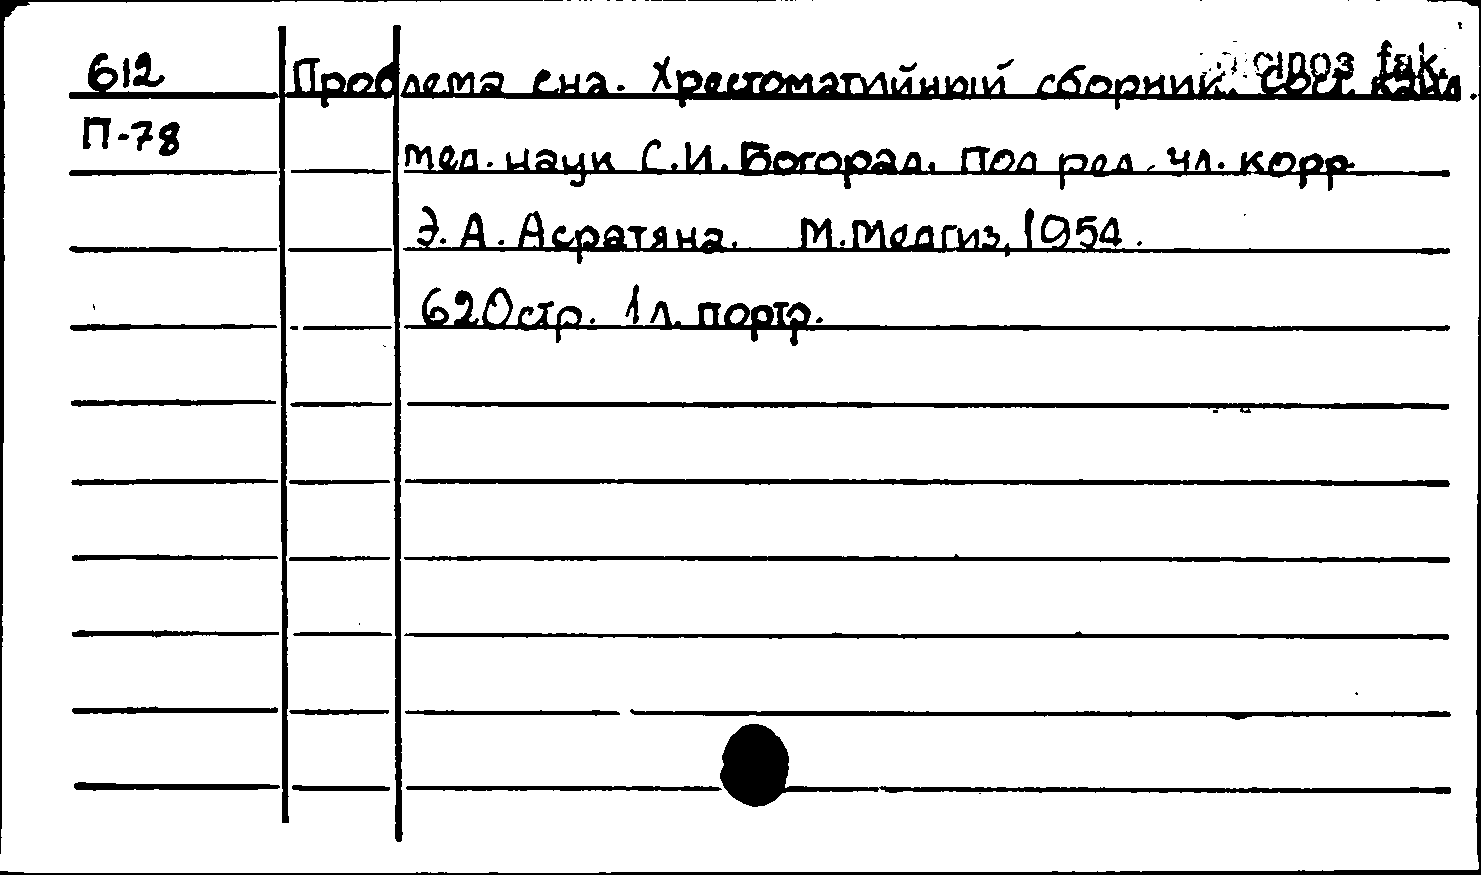 612 Проблема сна. Хрестоматийный сборник. Сост. канд.
П-78 мед. наук С.И. Богорад. Под ред. чл. корр
Э.А. Асратяна. М. Медгиз, 1954.
620стр. 1 л. портр.
fak.